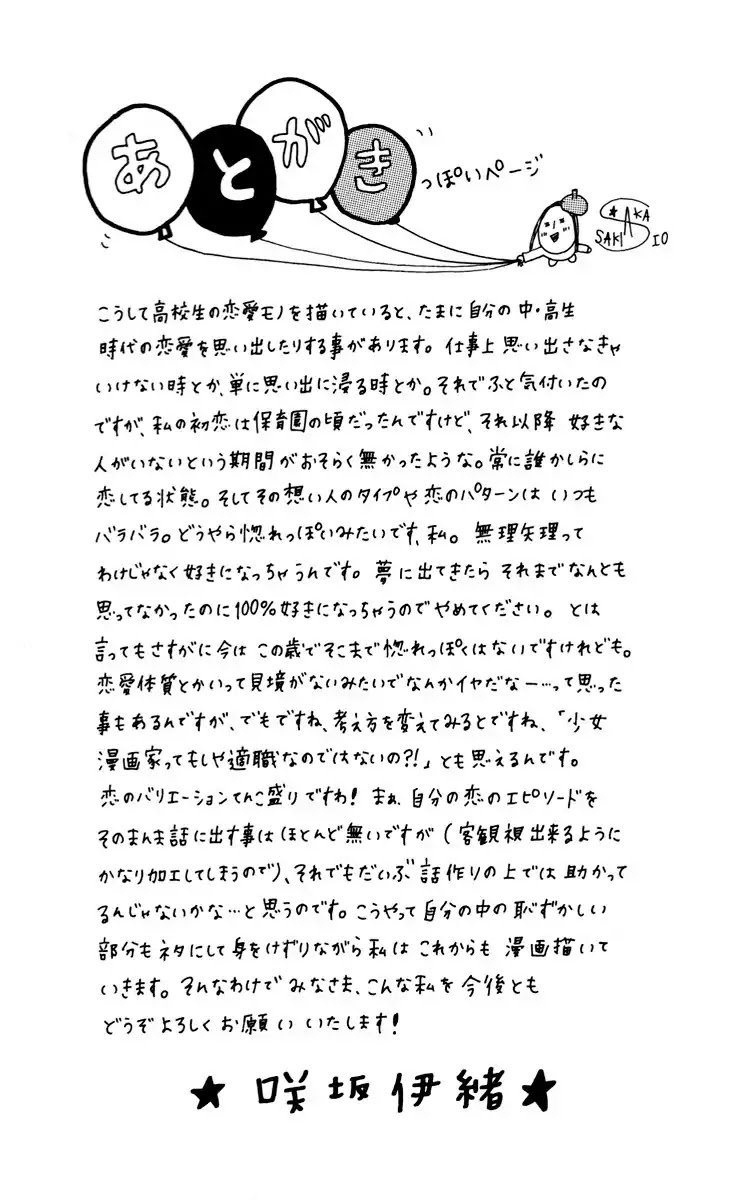 あとがき
っぽいページ
SAKISAKA IO
こうして高校生の恋愛モノを描いていると、たまに自分の中・高生
時代の恋愛を思い出したりする事があります。仕事上思い出さなきゃ
いけない時とか、単に思い出に浸る時とか。それでふと気付いたの
ですが、私の初恋は保育園の頃だったんですけど、それ以降 好きな
人がいないという期間がおそらく無かったような。常に誰かしらに
恋してる状態。そしてその想い人のタイプや恋のパターンは いつも
バラバラ。どうやら惚れっぽいみたいです、私。 無理矢理って
わけじゃなく好きになっちゃうんです。 夢に出てきたら それまでなんとも
思ってなかったのに100%好きになっちゃうのでやめてください。 とは
言ってもさすがに今は この歳でそこまで惚れっぽくはないですけれども。
恋愛体質とかいって見境がないみたいでなんかイヤだなー…って思った
事もあるんですが、でもですね、考え方を変えてみるとですね、「少女
漫画家ってもしや適職なのではないの?!」とも思えるんです。
恋のバリエーションてんこ盛りですわ! まぁ、自分の恋のエピソードを
そのまんま話に出す事はほとんど無いですが(客観視出来るように
かなり加工してしまうので)、それでもだいぶ話作りの上では助かって
るんじゃないかな…と思うのです。こうやって自分の中の恥ずかしい
部分もネタにして身をけずりながら私は これからも 漫画描いて
いきます。それなわけで みなさま、こんな私を今後とも
どうぞよろしく お願い いたします!
★ 咲坂伊緒 ★